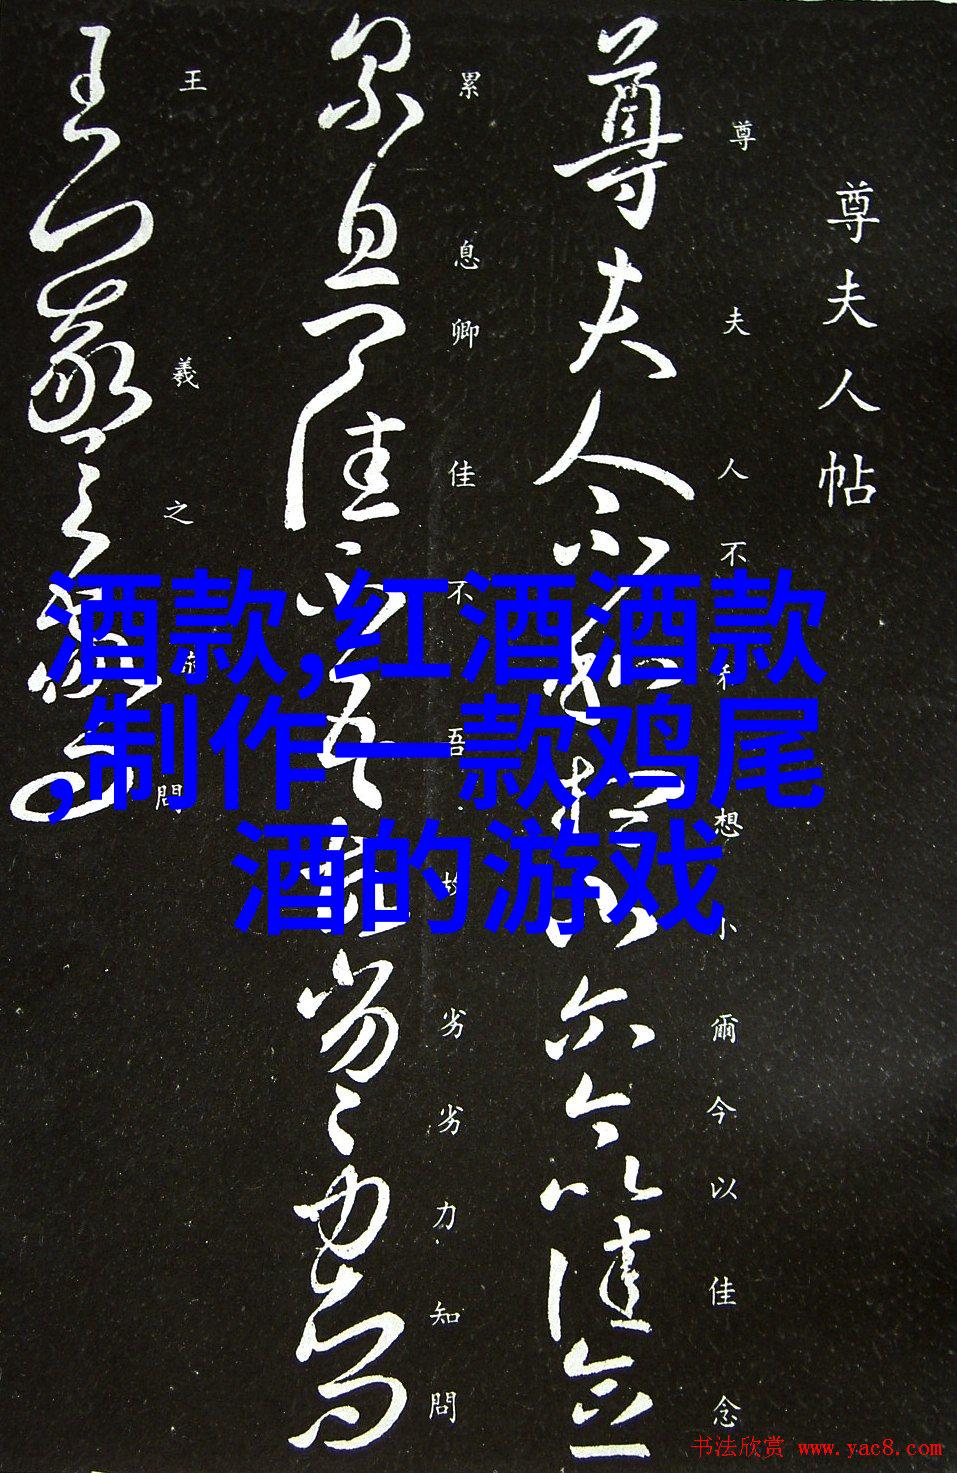 尊夫人帖
尊夫人不和想小爾今以佳念
累息卿佳不吾
劣劣力知問
王羲之
問
酒款,红酒酒款
,制作一款鸡尾
酒的游戏
书法欣赏 www.yac8.com